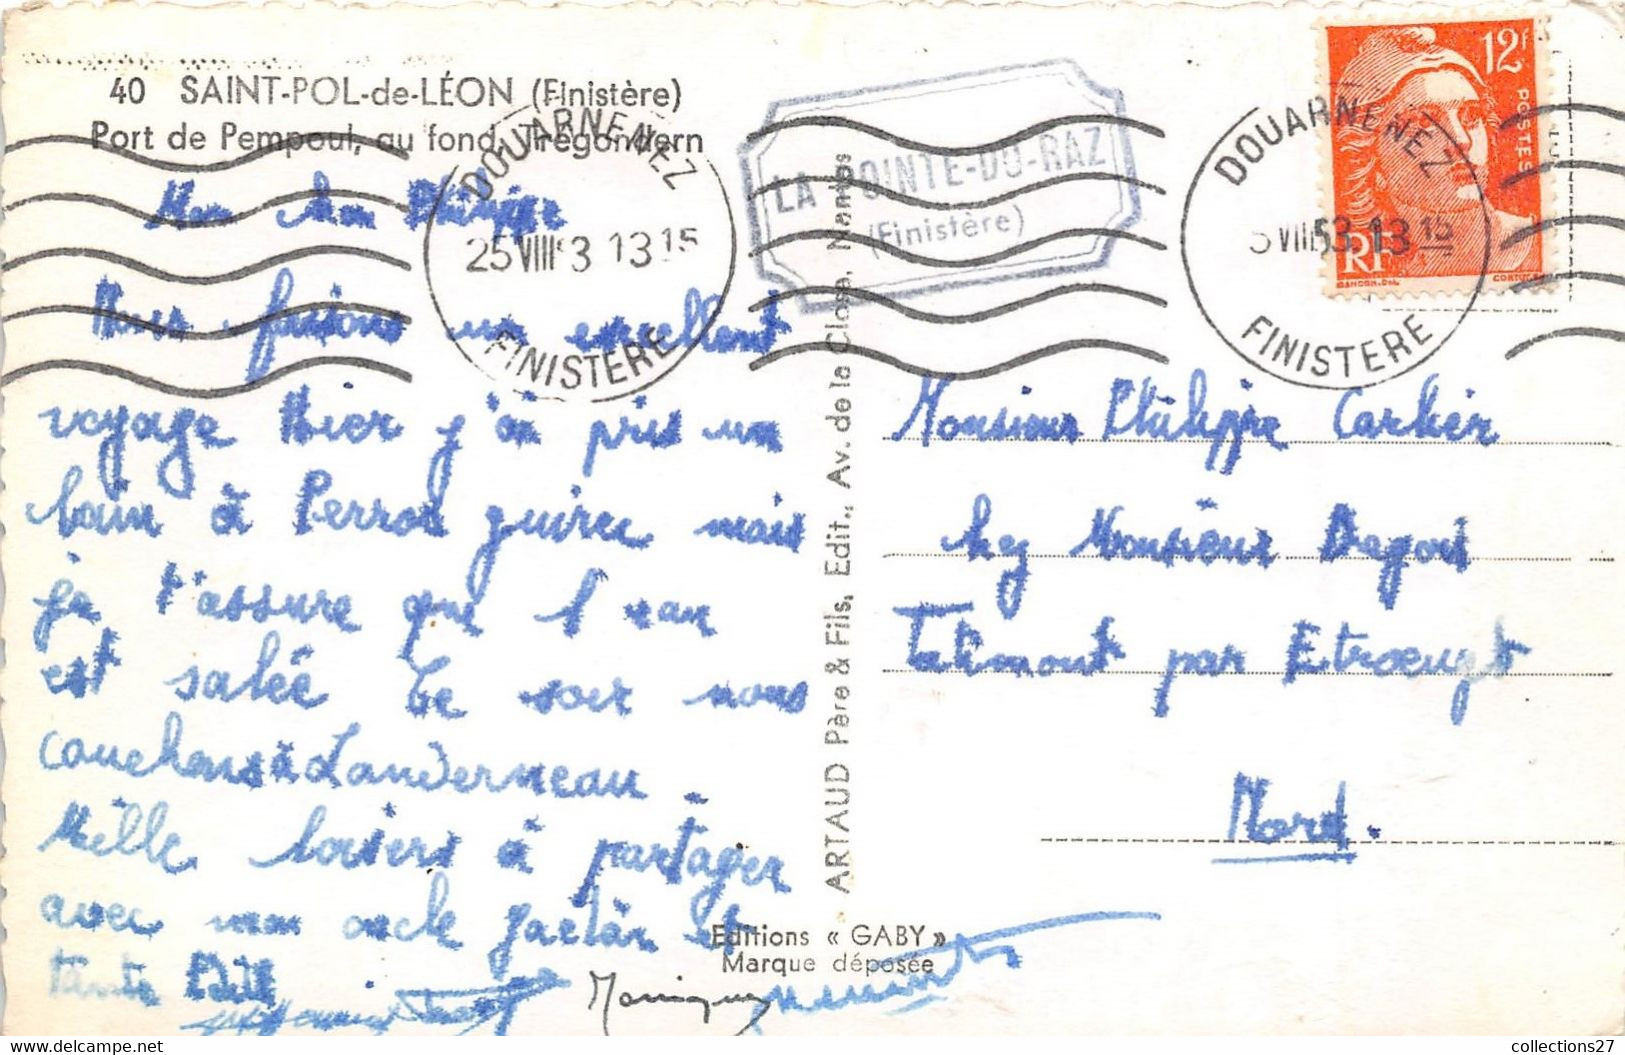 40 SAINT-POL-de-LÉON (Finistère)
Port de Pempoul, au fond, Trégondern
DOUARNENEZ
25 VIII 53 1315
FINISTERE
LA POINTE-DU-RAZ
(Finistère)
DOUARNENEZ
5 VIII 53 13 15
FINISTERE
12F
POSTES
RF
GANDON.DEL
Mon Philippe
Nous faisons un excellent
voyage Hier j'ai pris un
bain à Perros guirec mais
ça t'assure que l'eau
est salée Ce soir nous
couchons à Landerneau.
Mille baisers à partager
avec mon oncle gaëtan et
tante
Monique
ARTAUD Père & Fils, Edit., Av. de la Close, Nantes
Editions « GABY »
Marque déposée
Monsieur Philippe Carlier
chez Monsieur
Tatimont par Etroeungt
Nord.
collections27